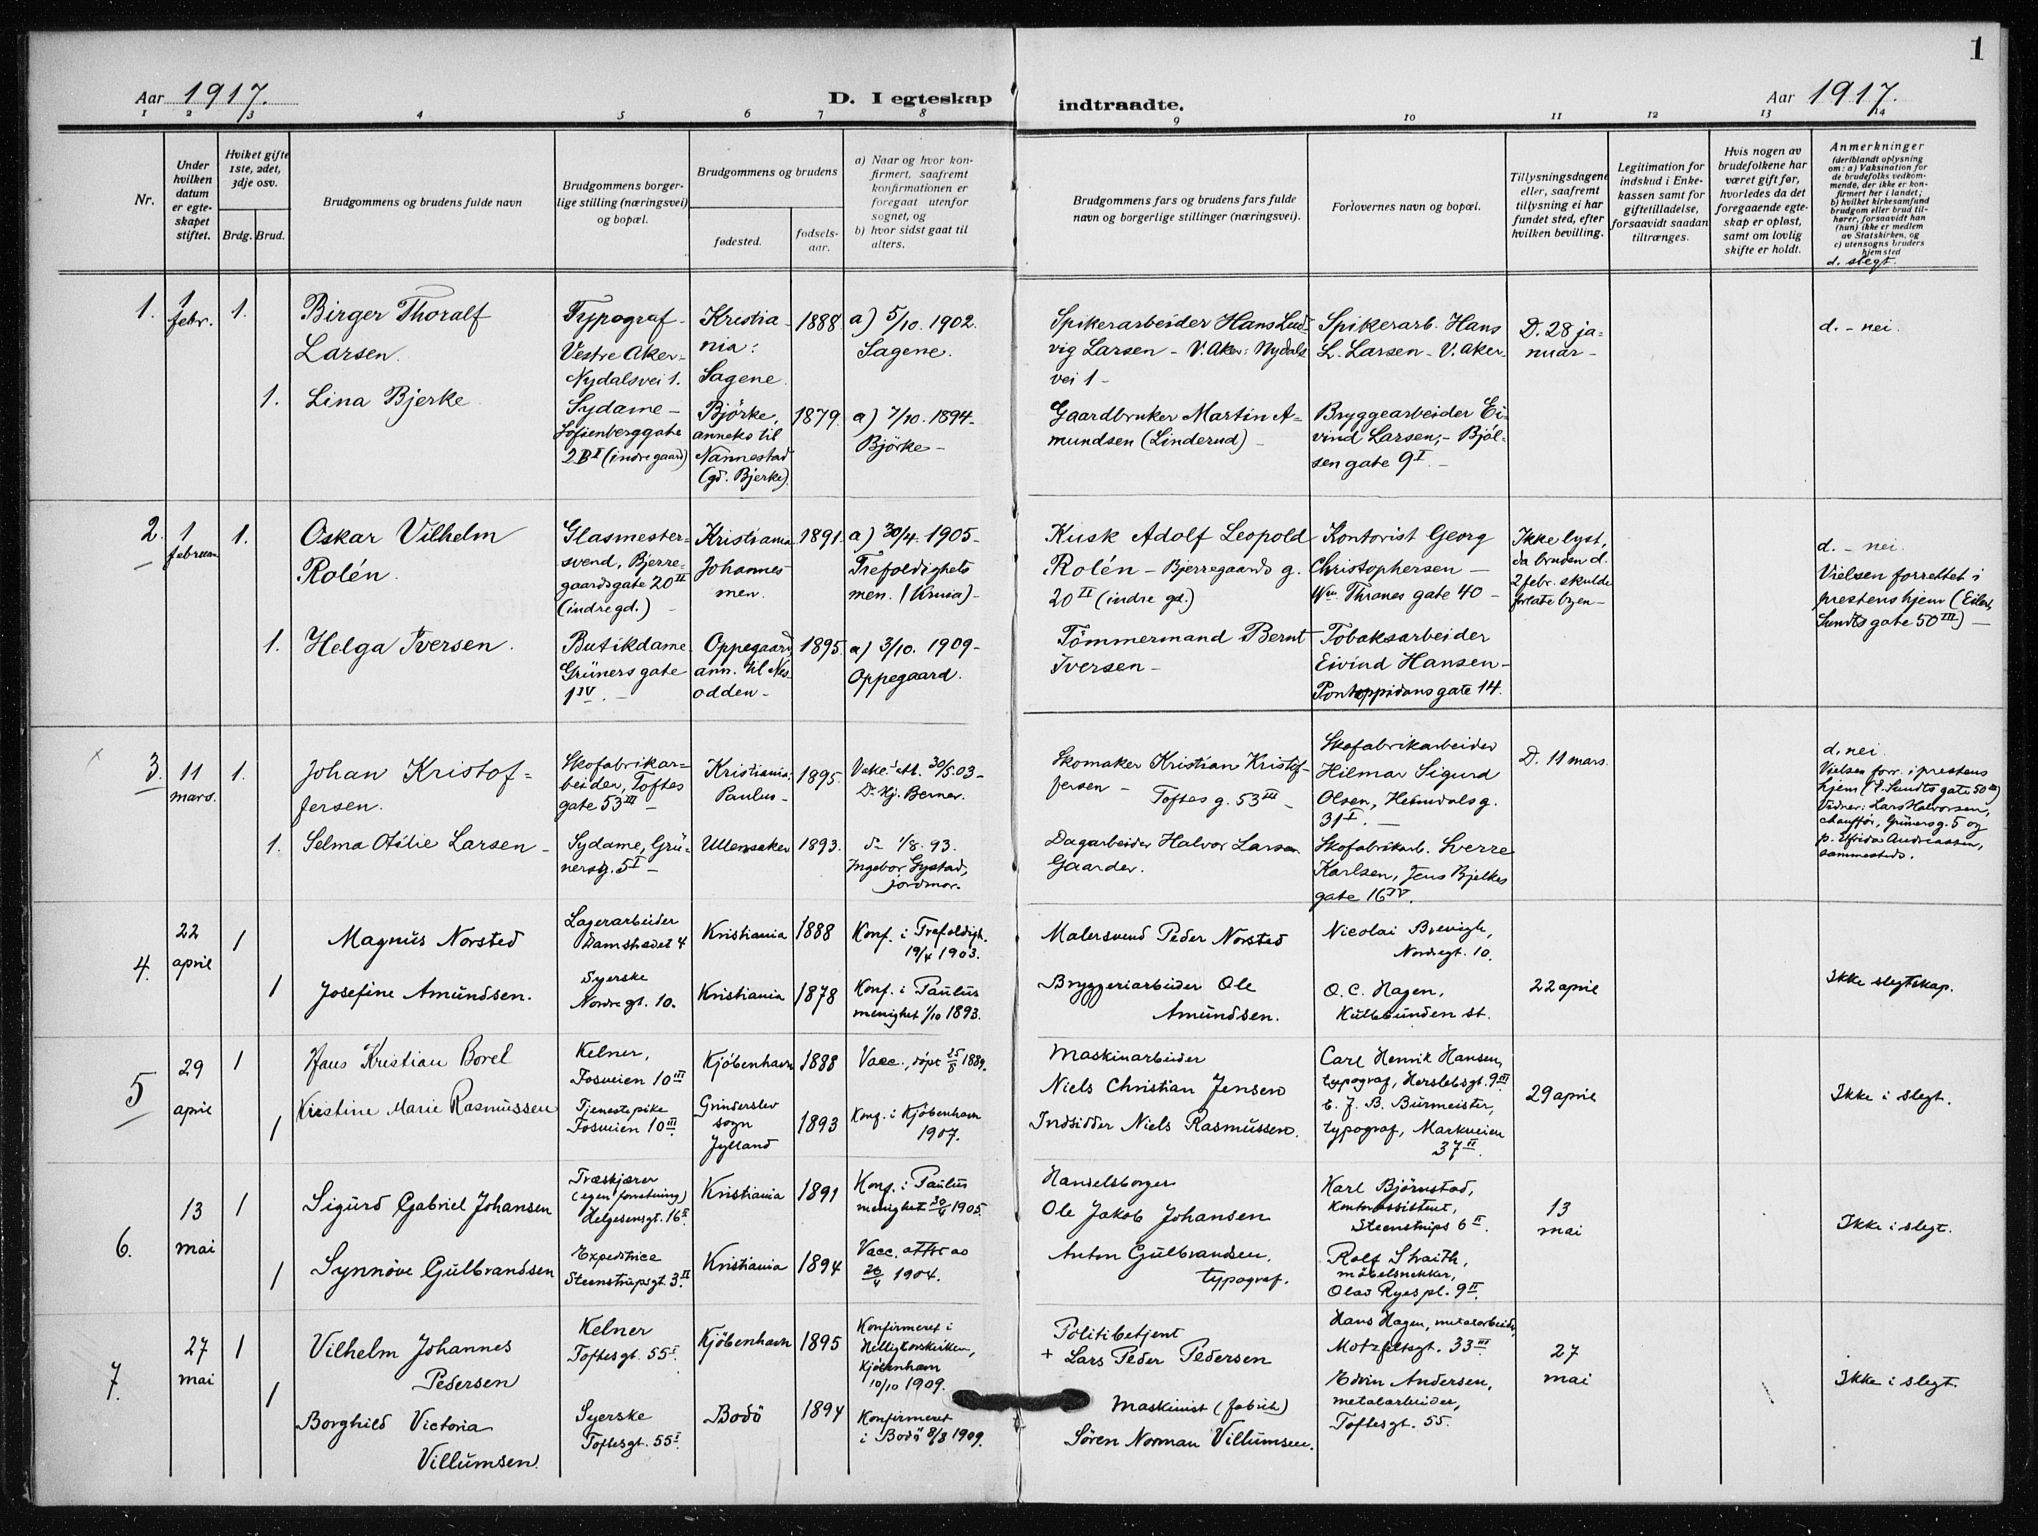 1
Aar 1917.
D. I egteskap indtraadte.
Aar 1917.
1 2 3 4 5 6 7 8 9 10 11 12 13 14
Nr.
Under
hvilken
datum
er egte-
skapet
stiftet.
Hviket gifte
1ste, 2det,
3dje osv.
Brdg. Brud.
Brudgommens og brudens fulde navn
Brudgommens borger-
lige stilling (næringsvei)
og bopæl.
Brudgommens og brudens
fødested.
fødsels-
aar.
a) Naar og hvor kon-
firmert, saafremt
konfirmationen er
foregaat utenfor
sognet, og
b) hvor sidst gaat til
alters.
Brudgommens fars og brudens fars fulde
navn og borgerlige stillinger (næringsvei).
Forlovernes navn og bopæl.
Tillysningsdagene
eller, saafremt
tillysning ei har
fundet sted, efter
hvilken bevilling.
Legitimation for
indskud i Enke-
kassen samt for
giftetilladelse,
forsaavidt saadan
tiltrænges.
Hvis nogen av
brudefolkene har
været gift før,
hvorledes da det
foregaaende egte-
skap er opløst,
samt om lovlig
skifte er holdt.
Anmerkninger
(deriblandt oplysning
om: a) Vaksination for
de brudefolks vedkom-
mende, der ikke er kon-
firmert her i landet;
b) hvilket kirkesamfund
brudgom eller brud til-
hører, forsaavidt han
(hun) ikke er medlem
av Statskirken, og
c) utensogns bruders
hjemsted
d. slegt.
1.
1
febr.
1.
Birger Thoralf
Larsen.
Typograf -
Vestre Aker -
Nydalsvei 1.
Kristia-
nia:
Sagene.
1888
a) 5/10. 1902.
Sagene.
Spikerarbeider Hans Lud-
vig Larsen - V. Aker: Nydals
vei 1 -
Spikerarb. Hans
L. Larsen - V. Aker-
D. 28 ja-
nuar -
d. - nei.
1.
Lina Bjerke
Sydame -
Sofienberggate
2B I (indre gaard)
Bjørke,
anneks til
Nannestad
(gd. Bjerke)
1879.
a) 7/10. 1894 -
Bjørke -
Gaardbruker Martin A-
mundsen (Linderud) -
Bryggearbeider Ei-
vind Larsen, - Bjøl-
sengate 9 I. -
2.
1
februar
1.
Oskar Vilhelm
Rolén.
Glasmester-
svend, Bjerre-
gaardsgate 20 II
(indre gd.) -
Kristiania
Johannes
men.
1891.
a) 30/4. 1905 -
Trefoldighets
men. (Krnia) -
Kusk Adolf Leopold
Rolén - Bjerregaards g.
20 II (indre gd.)
Kontorist Georg
Christophersen -
Wm. Thranes gate 40 -
Ikke lyst,
da bruden d.
2 febr. skulde
forlate byen -
d. - nei.
Vielsen forrettet i
prestens hjem (Eilert
Sundts gate 50 III) -
1.
Helga Iversen.
Butikdame
Grüners gate
1 IV. -
Oppegaard
ann. til Nes-
odden -
1895.
a) 3/10. 1909 -
Oppegaard.
Tømmermand Bernt
Iversen -
Tobaksarbeider
Eivind Hansen -
Pontoppidans gate 14.
x
3.
11
mars.
1.
Johan Kristof-
fersen.
Skofabrikar-
beider, Toftes
gate 53 III -
Kristiania;
Paulus -
1895.
Vakc. att. 30/5.03 -
Dr. Hj. Berner.
Skomaker Kristian Kristof-
fersen - Toftes g. 53 III -
Skofabrikarbeider
Hilmar Sigurd
Olsen, Heimdals g.
31 I. -
D. 11 mars.
d. nei.
Vielsen forr. i prestens
hjem (E. Sundts gate 50 III)
Vidner: Lars Halvorsen,
chauffør, Grüners g. 5 og
p. Elfrida Andreassen,
sammesteds.
1.
Selma Otilie Larsen -
Sydame, Grü-
nersg. 5 I -
Ullensaker
1893.
do 1/8. 93.
Ingebor Systad,
jordmor.
Dagarbeider Halvor Larsen
Gaarder.
Skofabrikarb. Sverre
Karlsen, Jens Bjelkes
gate 16 IV.
4.
22
april
1
Magnus Norsted
Lagerarbeider
Damstredet 4
Kristiania
1888
Konf. i Trefoldigh.
19/4 1903.
Malersvend Peder Norsted
Nicolai Brevigh,
Nordregt. 10.
22 april
Ikke slegtskap.
1
Josefine Amundsen.
Syerske
Nordregt. 10.
Kristiania
1878
Konf. i Paulus
menighet 1/10 1893.
Bryggeriarbeider Ole
Amundsen.
O. C. Hagen,
Kullebunden st.
5
29
april
1
Hans Kristian Borel
Kelner,
Fosveien 10 III
Kjøbenhavn
1888
Vacc., døpt 25/8 1889.
Maskinarbeider
Niels Christian Jensen
Carl Henrik Hansen,
typograf, Herslebsgt. 9 III
29 april
Ikke i slegt.
1
Kirstine Marie Rasmussen
Tjenestepike
Fosveien 10 III.
Grinderslev
sogn
Jylland
1893
Konf. i Kjøbenhavn
1907.
Indsidder Niels Rasmussen.
C. J. B. Burmeister,
typograf, Markveien
37 II.
6.
13
mai
1
Sigurd Gabriel Johansen
Træskjærer
(egen forretning)
Helgesensgt. 16 II
Kristiania
1891
Konf. i Paulus
menighet 30/4 1905.
Handelsborger
Ole Jakob Johansen
Karl Bjørnstad,
Kontorassistent,
Steenstrups 6 II.
13
mai
Ikke i slegt.
1
Synnøve Gulbrandsen
Expeditrice
Steenstrupsgt. 3. II
Kristiania
1894
Vacc. attest ao
26/4 1904.
Anton Gulbrandsen.
typograf.
Rolf Sraith,
møbelsnekker,
Olav Ryes pl. 9 II.
7.
27
mai
1
Vilhelm Johannes
Pedersen
Kelner
Toftesgt. 55 I.
Kjøbenhavn
1895
Konfirmeret i
Helligkorskirken,
Kjøbenhavn
10/10 1909.
Politibetjent
+ Lars Peder Pedersen
Hans Hagen, metalarbeider,
Motzfeltsgt. 33 III.
27
mai
Ikke i slegt.
1
Borghild Victoria
Villumsen.
Syerske
Toftesgt. 55 I.
Bodø
1894
Konfirmeret
i Bodø 8/8 1909.
Maskinist (fabrik)
Søren Norman Villumsen.
Edvin Andersen,
metalarbeider,
Toftesgt. 55.